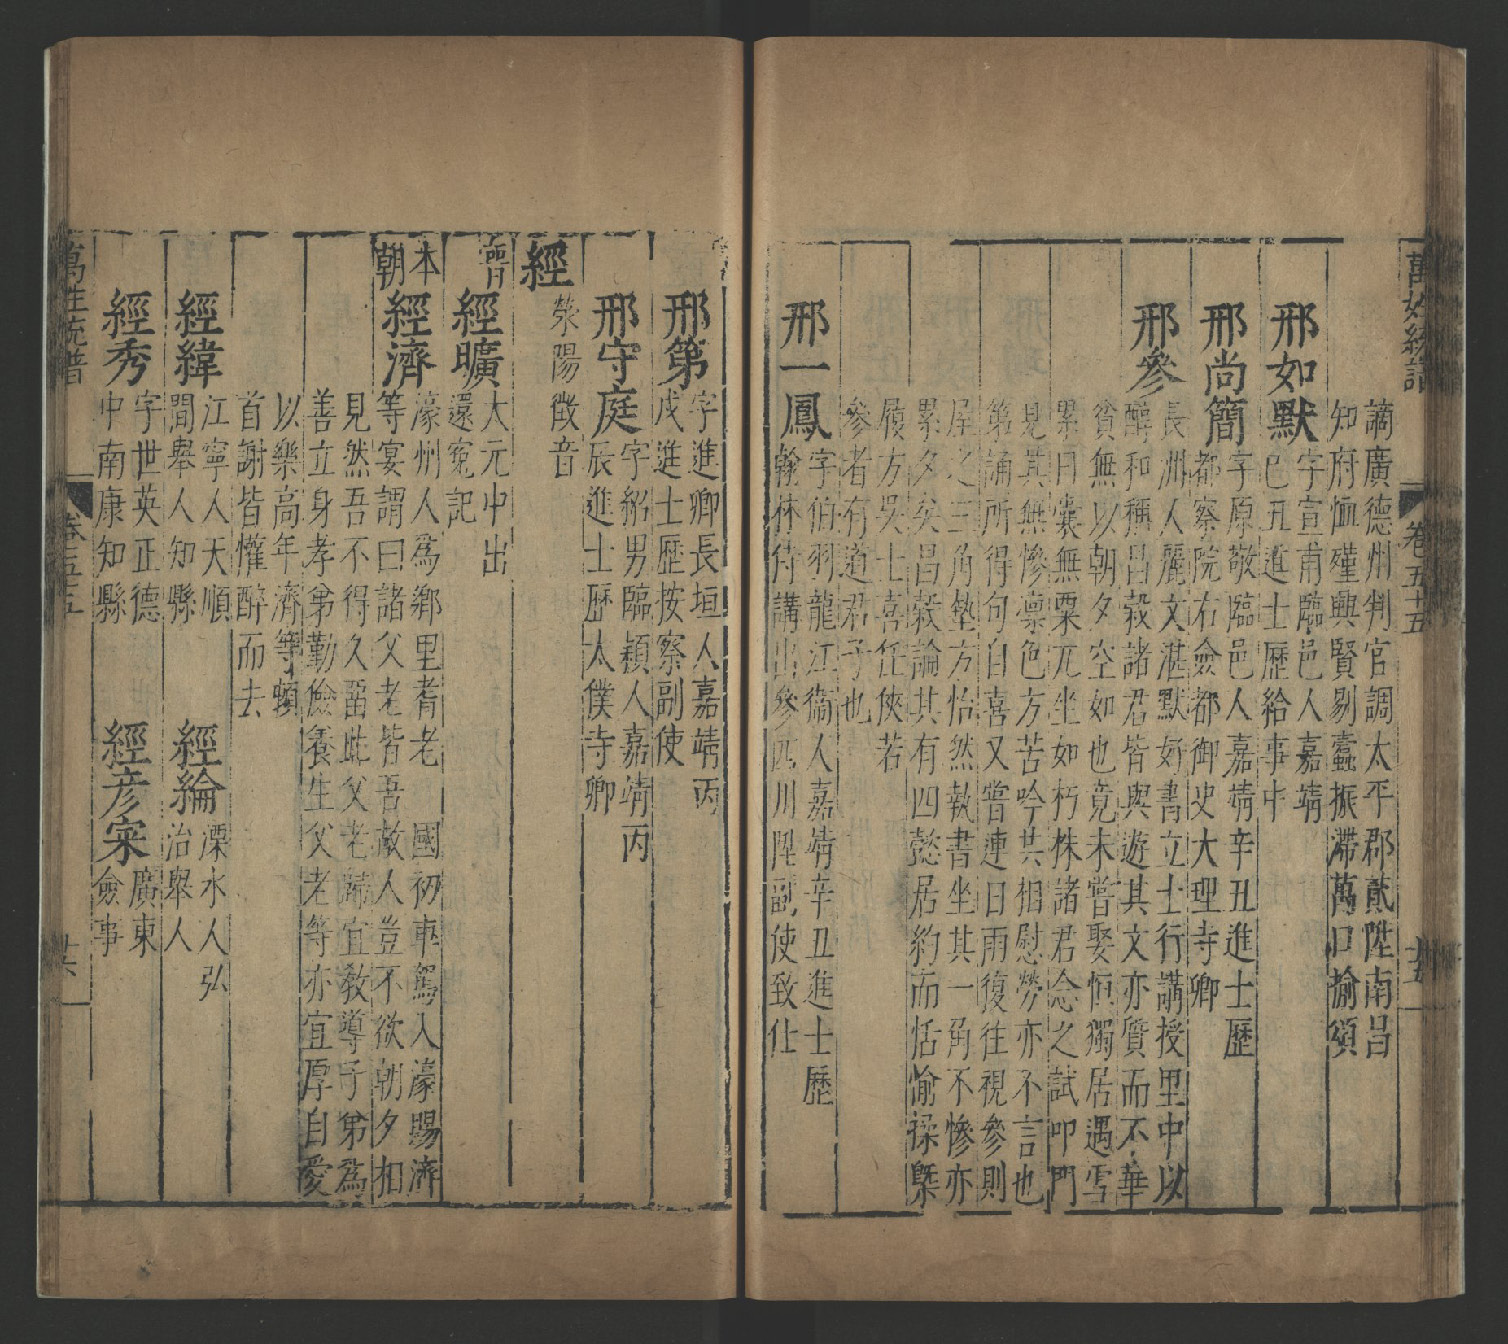 萬姓統譜 卷五十五
謫廣德州判官調太平郡貳陞南昌
知府恤殣興賢剔蠹振滯萬口揄頌
邢如默字宣甫臨邑人嘉靖
己丑進士歷給事中
邢尚簡字原敬臨邑人嘉靖辛丑進士歷
都察院右僉都御史大理寺卿
邢參長洲人麗文湛默好書立士行講授里中以
醇和稱昌穀諸君皆與遊其文亦質而不華
貧無以朝夕空如也竟未嘗娶恒獨居遇雪
累日囊無粟兀坐如朽株諸君念之試叩門
見其無慘凛色方苦吟共相慰勞亦不言也
第誦所得句自喜又嘗連日雨復往視參則
屋之三角墊方怡然執書坐其一角不慘亦
累夕矣昌穀論其有四懿居約而恬愉襍槩
履方吳士喜任俠若
參者有道君子也
邢一鳳字伯羽龍江衞人嘉靖辛丑進士歷
翰林侍講出參四川陞副使致仕
邢第字進卿長垣人嘉靖丙
戌進士歷按察副使
邢守庭字紹男臨潁人嘉靖丙
辰進士歷太僕寺卿
經 滎陽徵音
晉 經曠大元中出
還寃記
本朝 經濟濠州人爲鄉里耆老 國初車駕入濠賜濟
等宴謂曰諸父老皆吾故人豈不欲朝夕相
見然吾不得久畱此父老歸宜教導子弟爲
善立身孝弟勤儉養生父老等亦宜厚自愛
以樂高年濟等頓
首謝皆懽醉而去
經緯江寧人天順
間舉人知縣 經綸溧水人弘
治舉人
經秀字世英正德
中南康知縣 經彦寀廣東
僉事
萬姓統譜 卷五十五 廿六